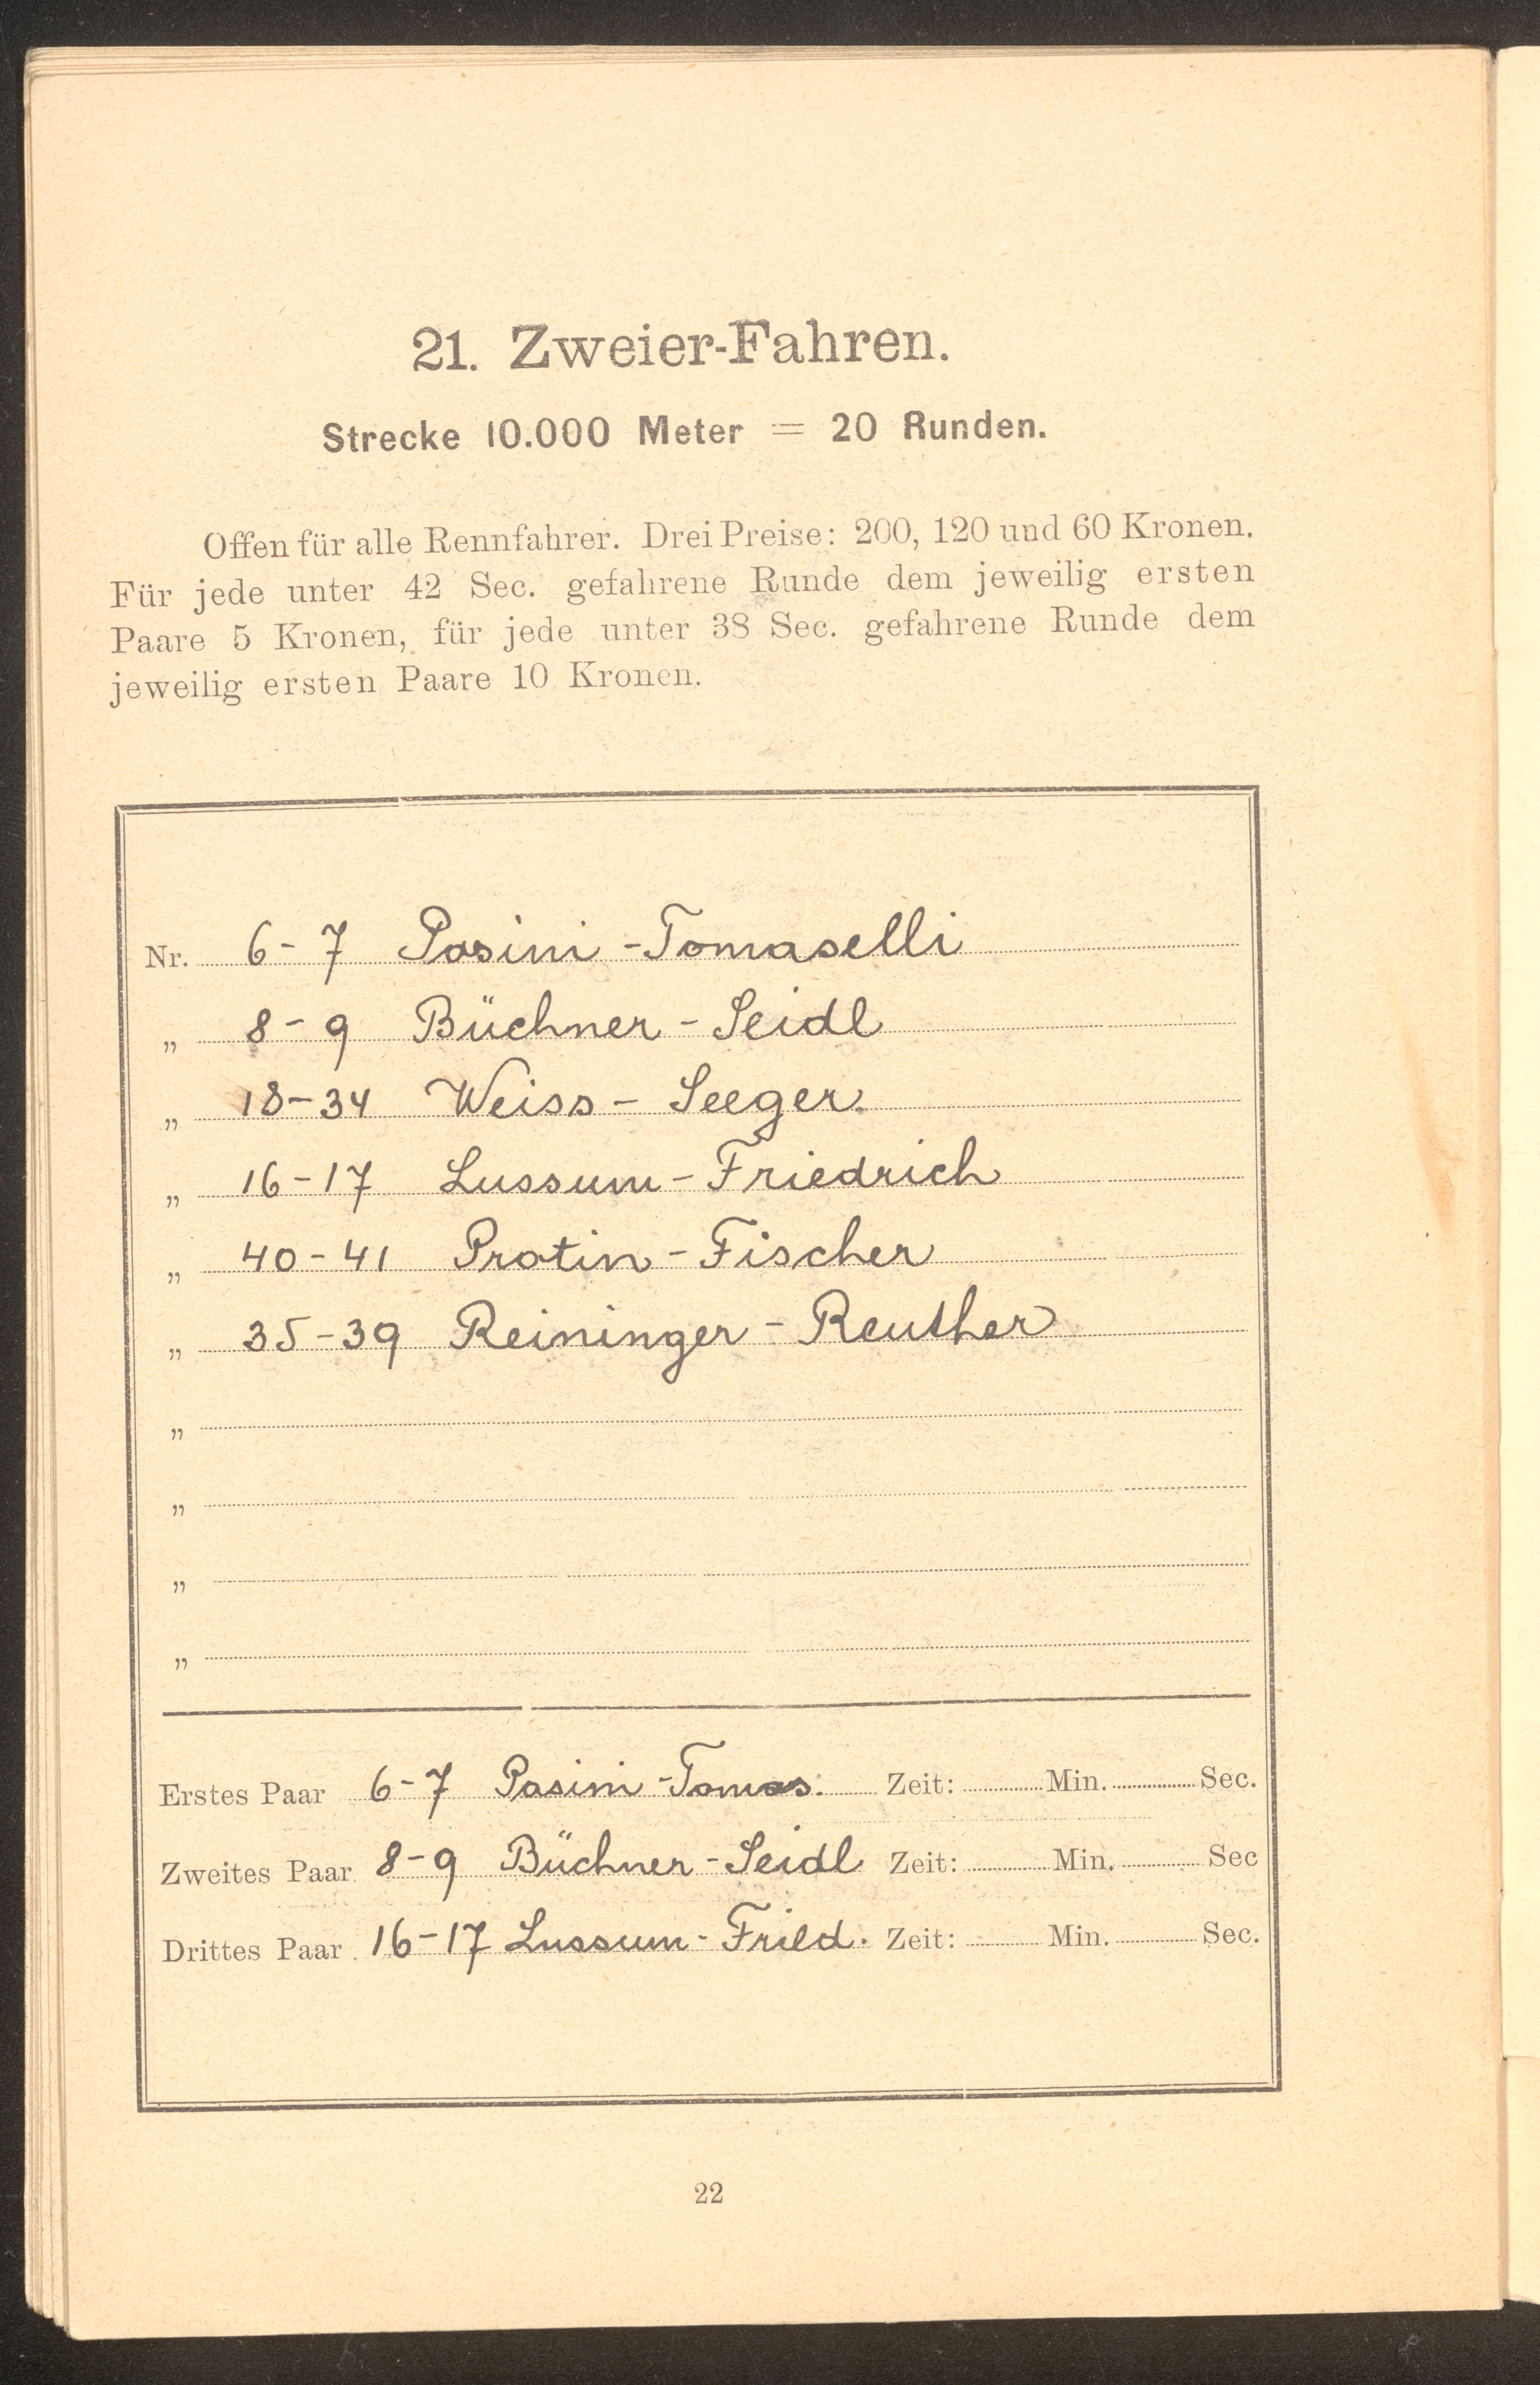 21. Zweier-Fahren.
Strecke 10.000 Meter = 20 Runden.
Offen für alle Rennfahrer. Drei Preise: 200, 120 und 60 Kronen.
Für jede unter 42 Sec. gefahrene Runde dem jeweilig ersten
Paare 5 Kronen, für jede unter 38 Sec. gefahrene Runde dem
jeweilig ersten Paare 10 Kronen.
Nr. 6-7 Pasini-Tomaselli
„ 8-9 Büchner-Seidl
„ 18-34 Weiss-Seeger.
„ 16-17 Lussum-Friedrich
„ 40-41 Protin-Fischer
„ 35-39 Reininger-Reuther
„
„
„
„
Erstes Paar 6-7 Pasini-Tomas. Zeit: Min. Sec.
Zweites Paar 8-9 Büchner-Seidl Zeit: Min. Sec
Drittes Paar 16-17 Lussum-Fried. Zeit: Min. Sec.
22